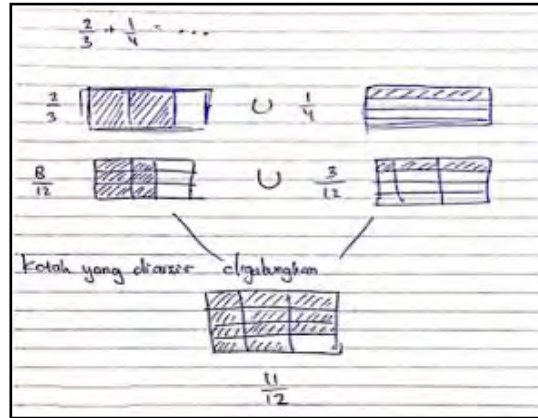 2/3 + 1/4 = ...
2/3 ∪ 1/4
8/12 ∪ 3/12
kotak yang diarsir digabungkan
11/12